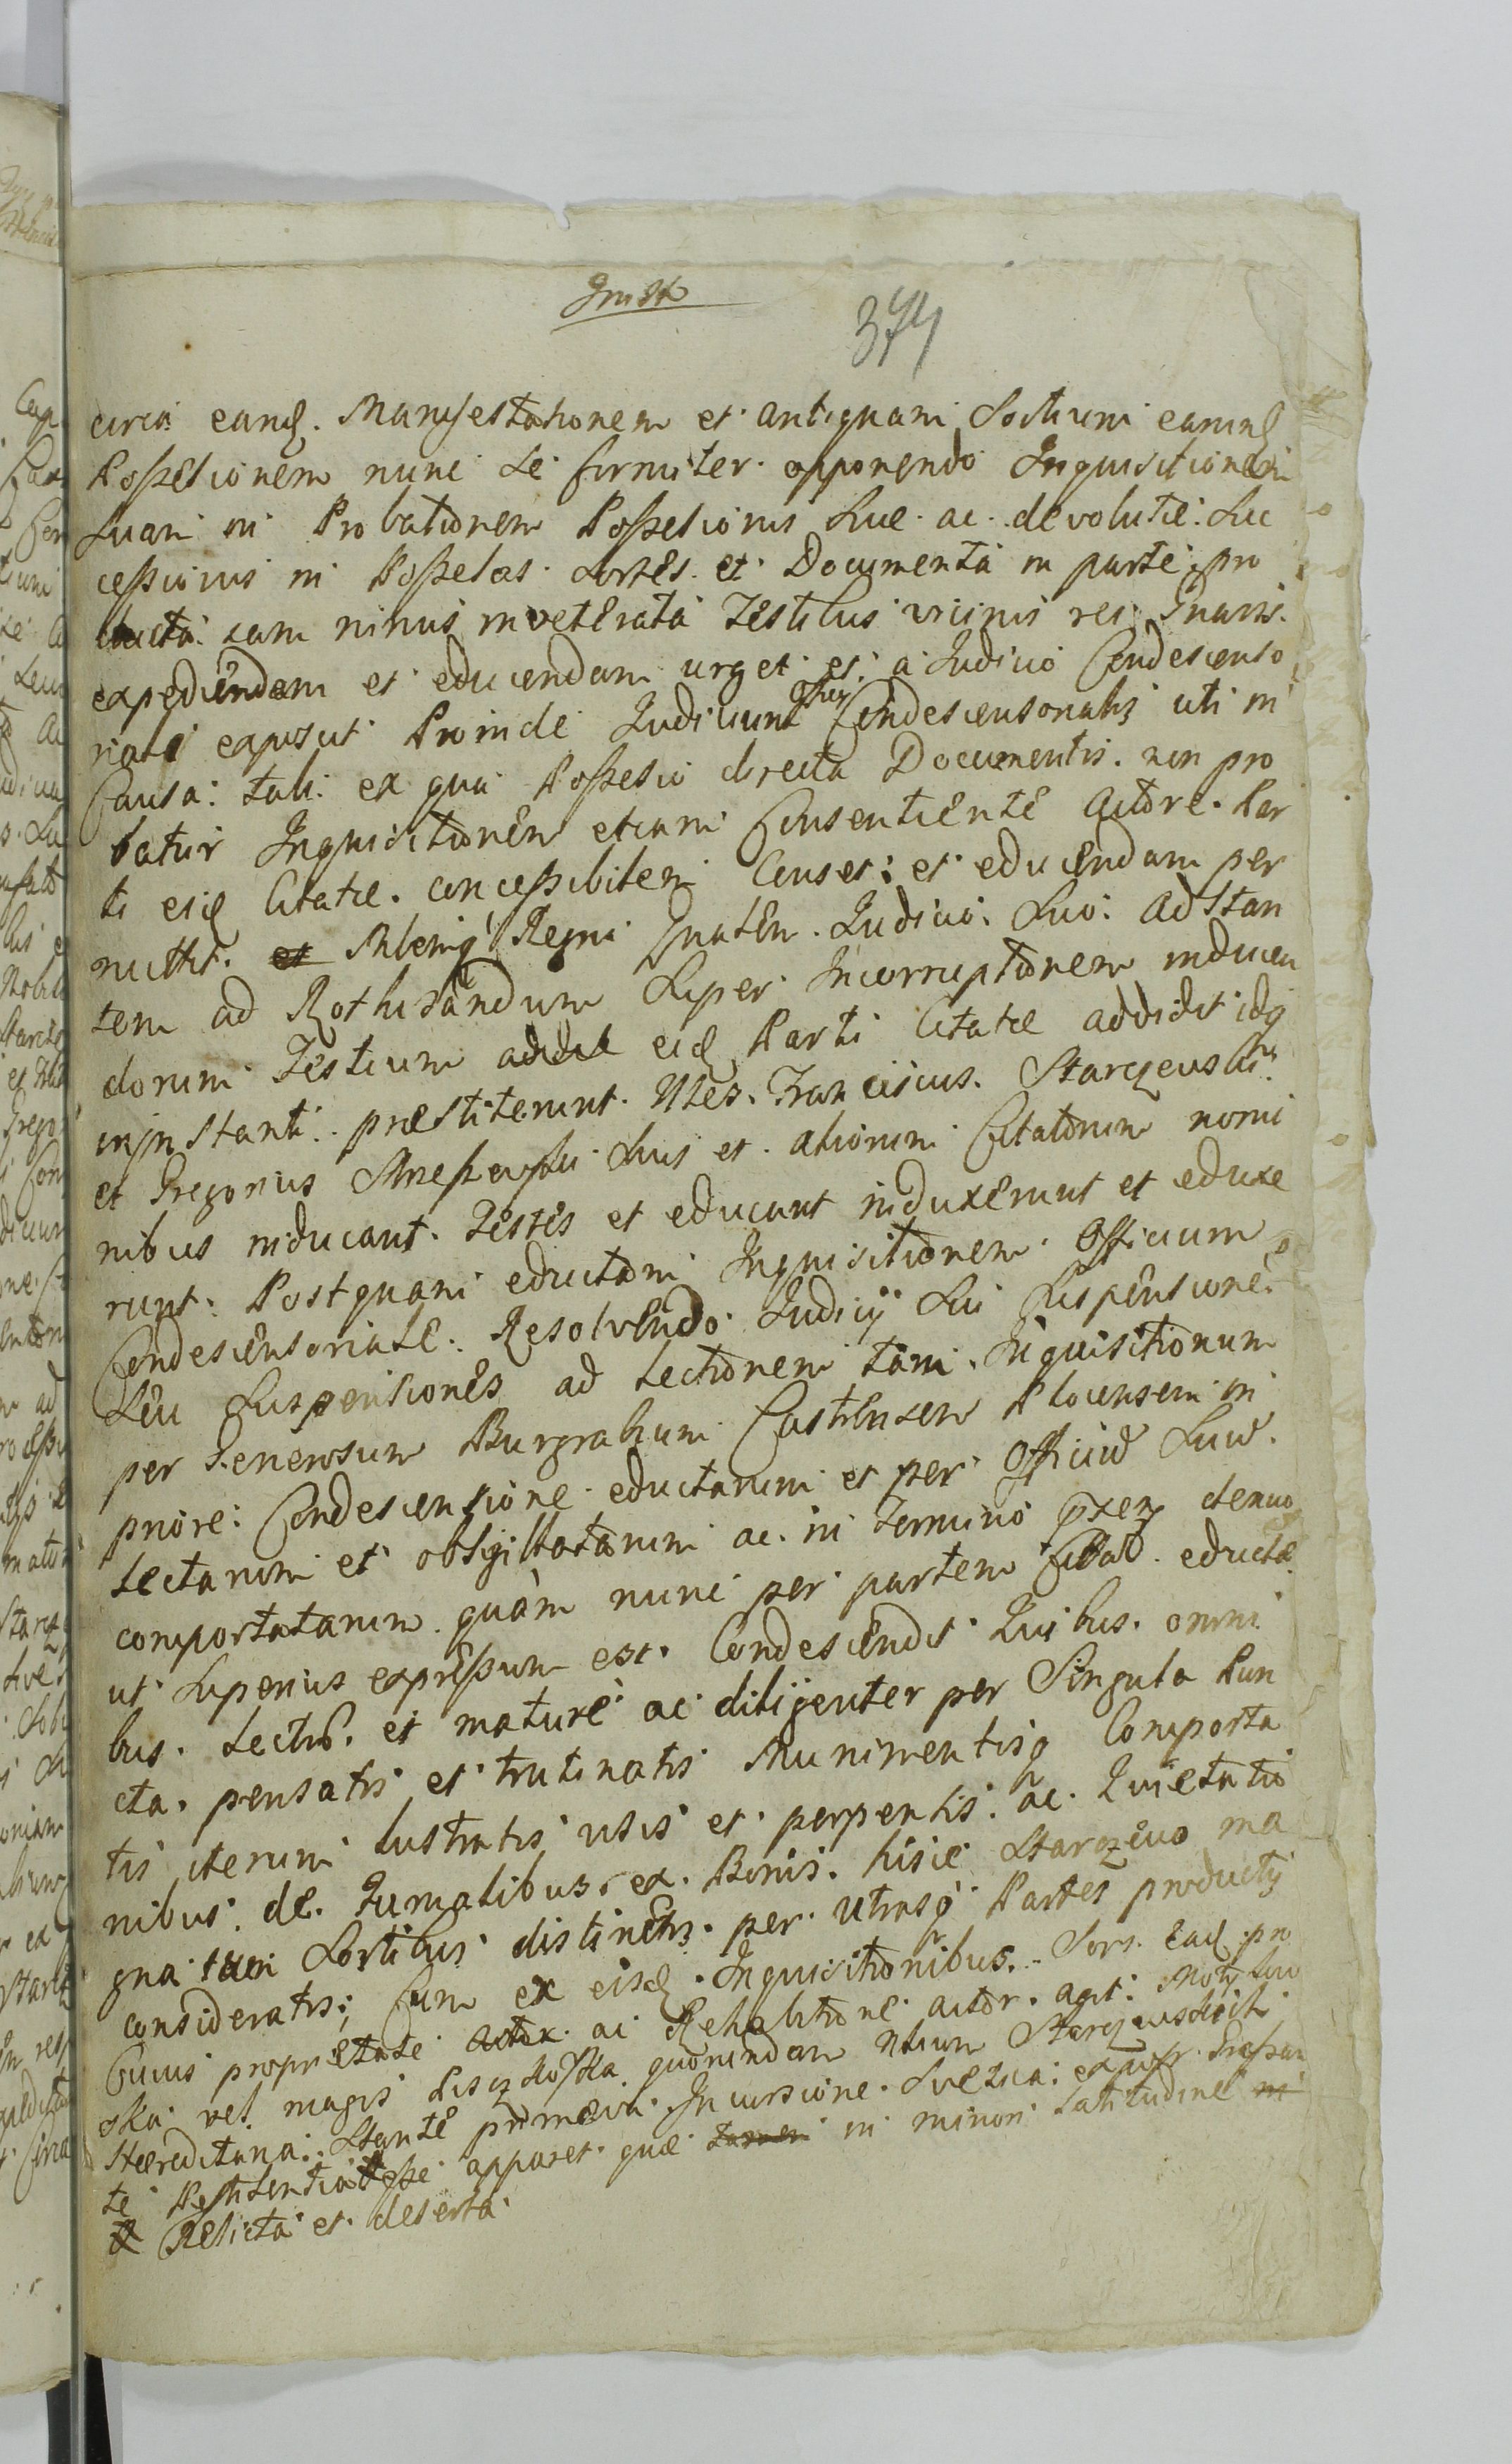 374
circa eand. Manifestationem et antiquam Sortium earund
Possesionem nunc se firmiter opponendo Inquisitionem
Suam in Probationem Possesionis Suæ ac devolutæ Suc
cessionis in Possesas Sortes et Documenta in parte pro
ducta iam nimis inveterata Testibus vicinis rei Gnaris
expediendam et educendam urget et a Judicio Condescenso
riali exposcit Proinde Judicium Condescensorialis uti in
Causa tali ex qua Possesio directa Documentis non pro
batur Inquisitionem etiam Consentiente Actore Par
ti eid Citatæ concessibilem Censet et educendam per
mittit Regni Judicio Suo adstan
tem ad Rothisandum Super Incorruptionem inducen
dorum Testium addit eid Parti Citatæ addidit idq
in instanti præstiterunt Nles Franciscus Starczewski
et Gregorius suis et aliorum Citatorum nomi
nibus inducant Testes et educant induxerunt et eduxe
runt Postquam eductam Inquisitionem Officium
Condescensoriale Resolvendo Judicij Sui Suspensione
Seu Suspensiones ad lectionem tam Inquisitionum
per Generosum Burgrabium Castrensem Plocensem in
priore Condescensione eductarum et per Officium Suum
lectarum et obsigillatarum ac in termino præs denuo
comportatarum quam nunc per partem Citat eductæ
ut Superius expressum est Condescendit Quibus omni
bus lectis et mature ac diligenter per Singula Pun
cta pensatis et trutinatis Munimentisq Comporta
tis iterum lustratis visis et perpensis ac Quietatio
nibus de Fumalibus ex Bonis hisce Starczewo ma
gna tam Sortibus distinctis per Utrasq Partes productis
consideratis; Cum ex eisd Inquisitionibus Sors Ead pro
Cuius proprietate actor ac Rehabitione actor agit
ska vel magis quorundam Nlium
Hæreditaria Stante primæva Incursione Svetica
te Pestilentia esse apparet quæ tamen in minori latitudine in
Relicta et deserta